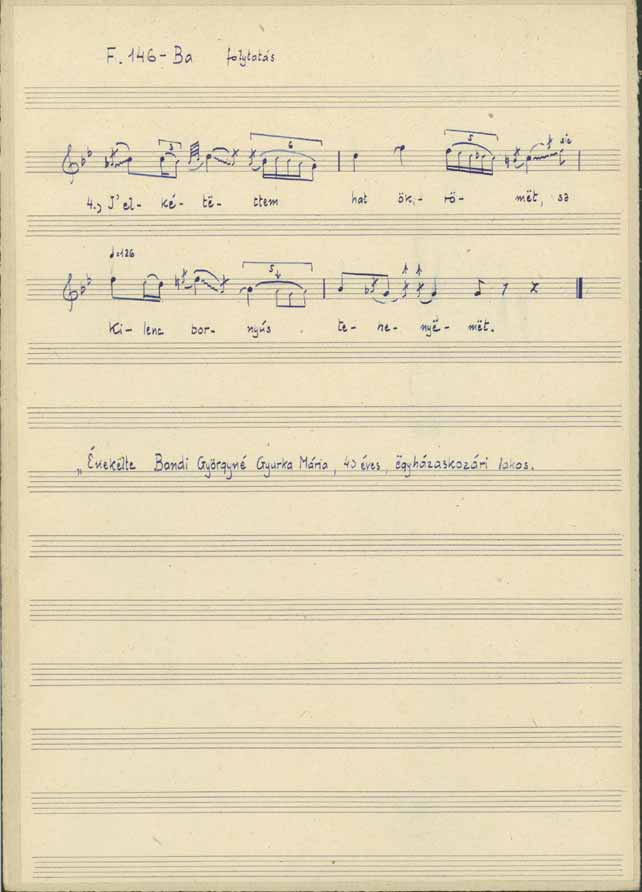 F. 146-Ba folytatás
3 6 5 sic
4., J'el- ké- të- ttem hat ök- rö- mët, sə
♩=126
5
Ki- lenc bor- nyús te- he- nyë- mët.
„Énekëlte Bandi Györgyné Gyurka Mária, 40 éves, ëgyházaskozári lakos.